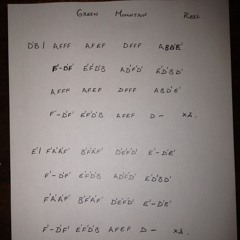 Green Mountain Reel
D'B | AFFF AFEF DFFF ABD'B'
F'-D'F' E'F'D'B AD'F'D' E'D'BD'
AFFF AFEF DFFF ABD'E'
F'-D'F' E'F'D'B AFEF D- x2.
E' | F'A'A'F' B'F'A'F' D'E'F'D' E'-D'E'
F'A'A'F' B'F'A'F' AD'F'D' E'D'BD'
F'A'A'F' B'F'A'F' D'E'F'D' E'-D'E'
F'-D'F' E'F'D'B AFEF D- x2.